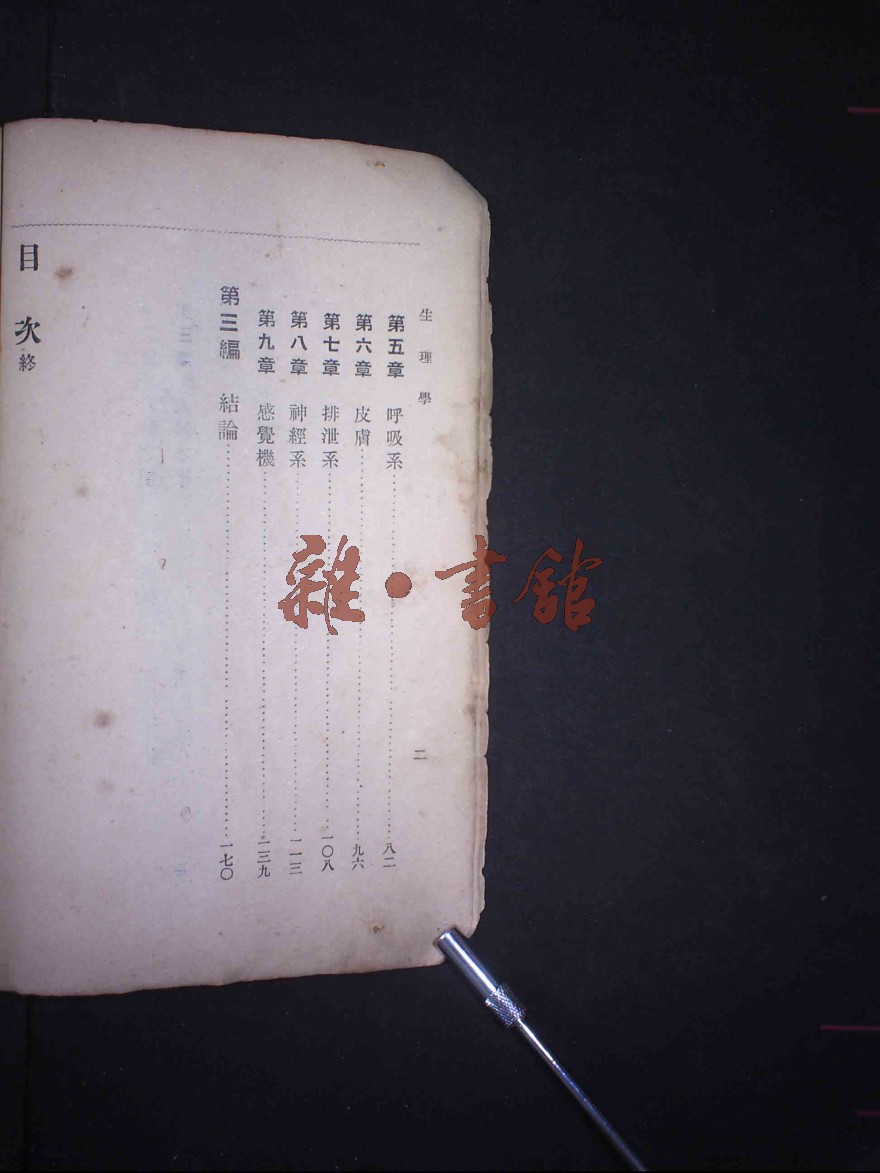 生理學
二
第五章 呼吸系…………八二
第六章 皮膚…………九六
第七章 排泄系…………一〇八
第八章 神經系…………一一三
第九章 感覺機…………一三九
第三編 結論…………一七〇
目次終
雜·書館